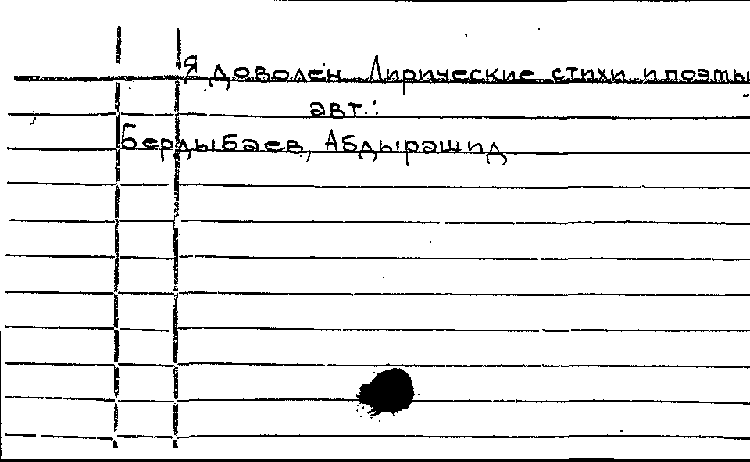 Я доволен Лирические стихи и поэмы
авт.:
Бердыбаев, Абдырашид